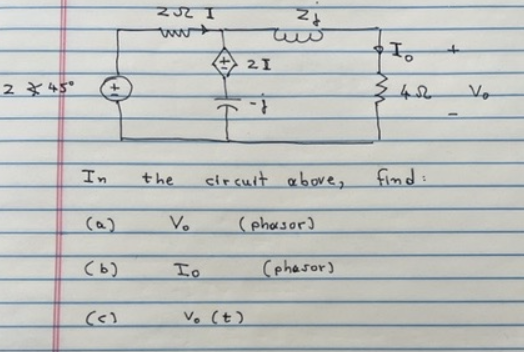 2Ω I 2j
2 ∡ 45° + - 2I I₀ +
-j 4Ω V₀
-
In the circuit above, find:
(a) V₀ (phasor)
(b) I₀ (phasor)
(c) V₀ (t)